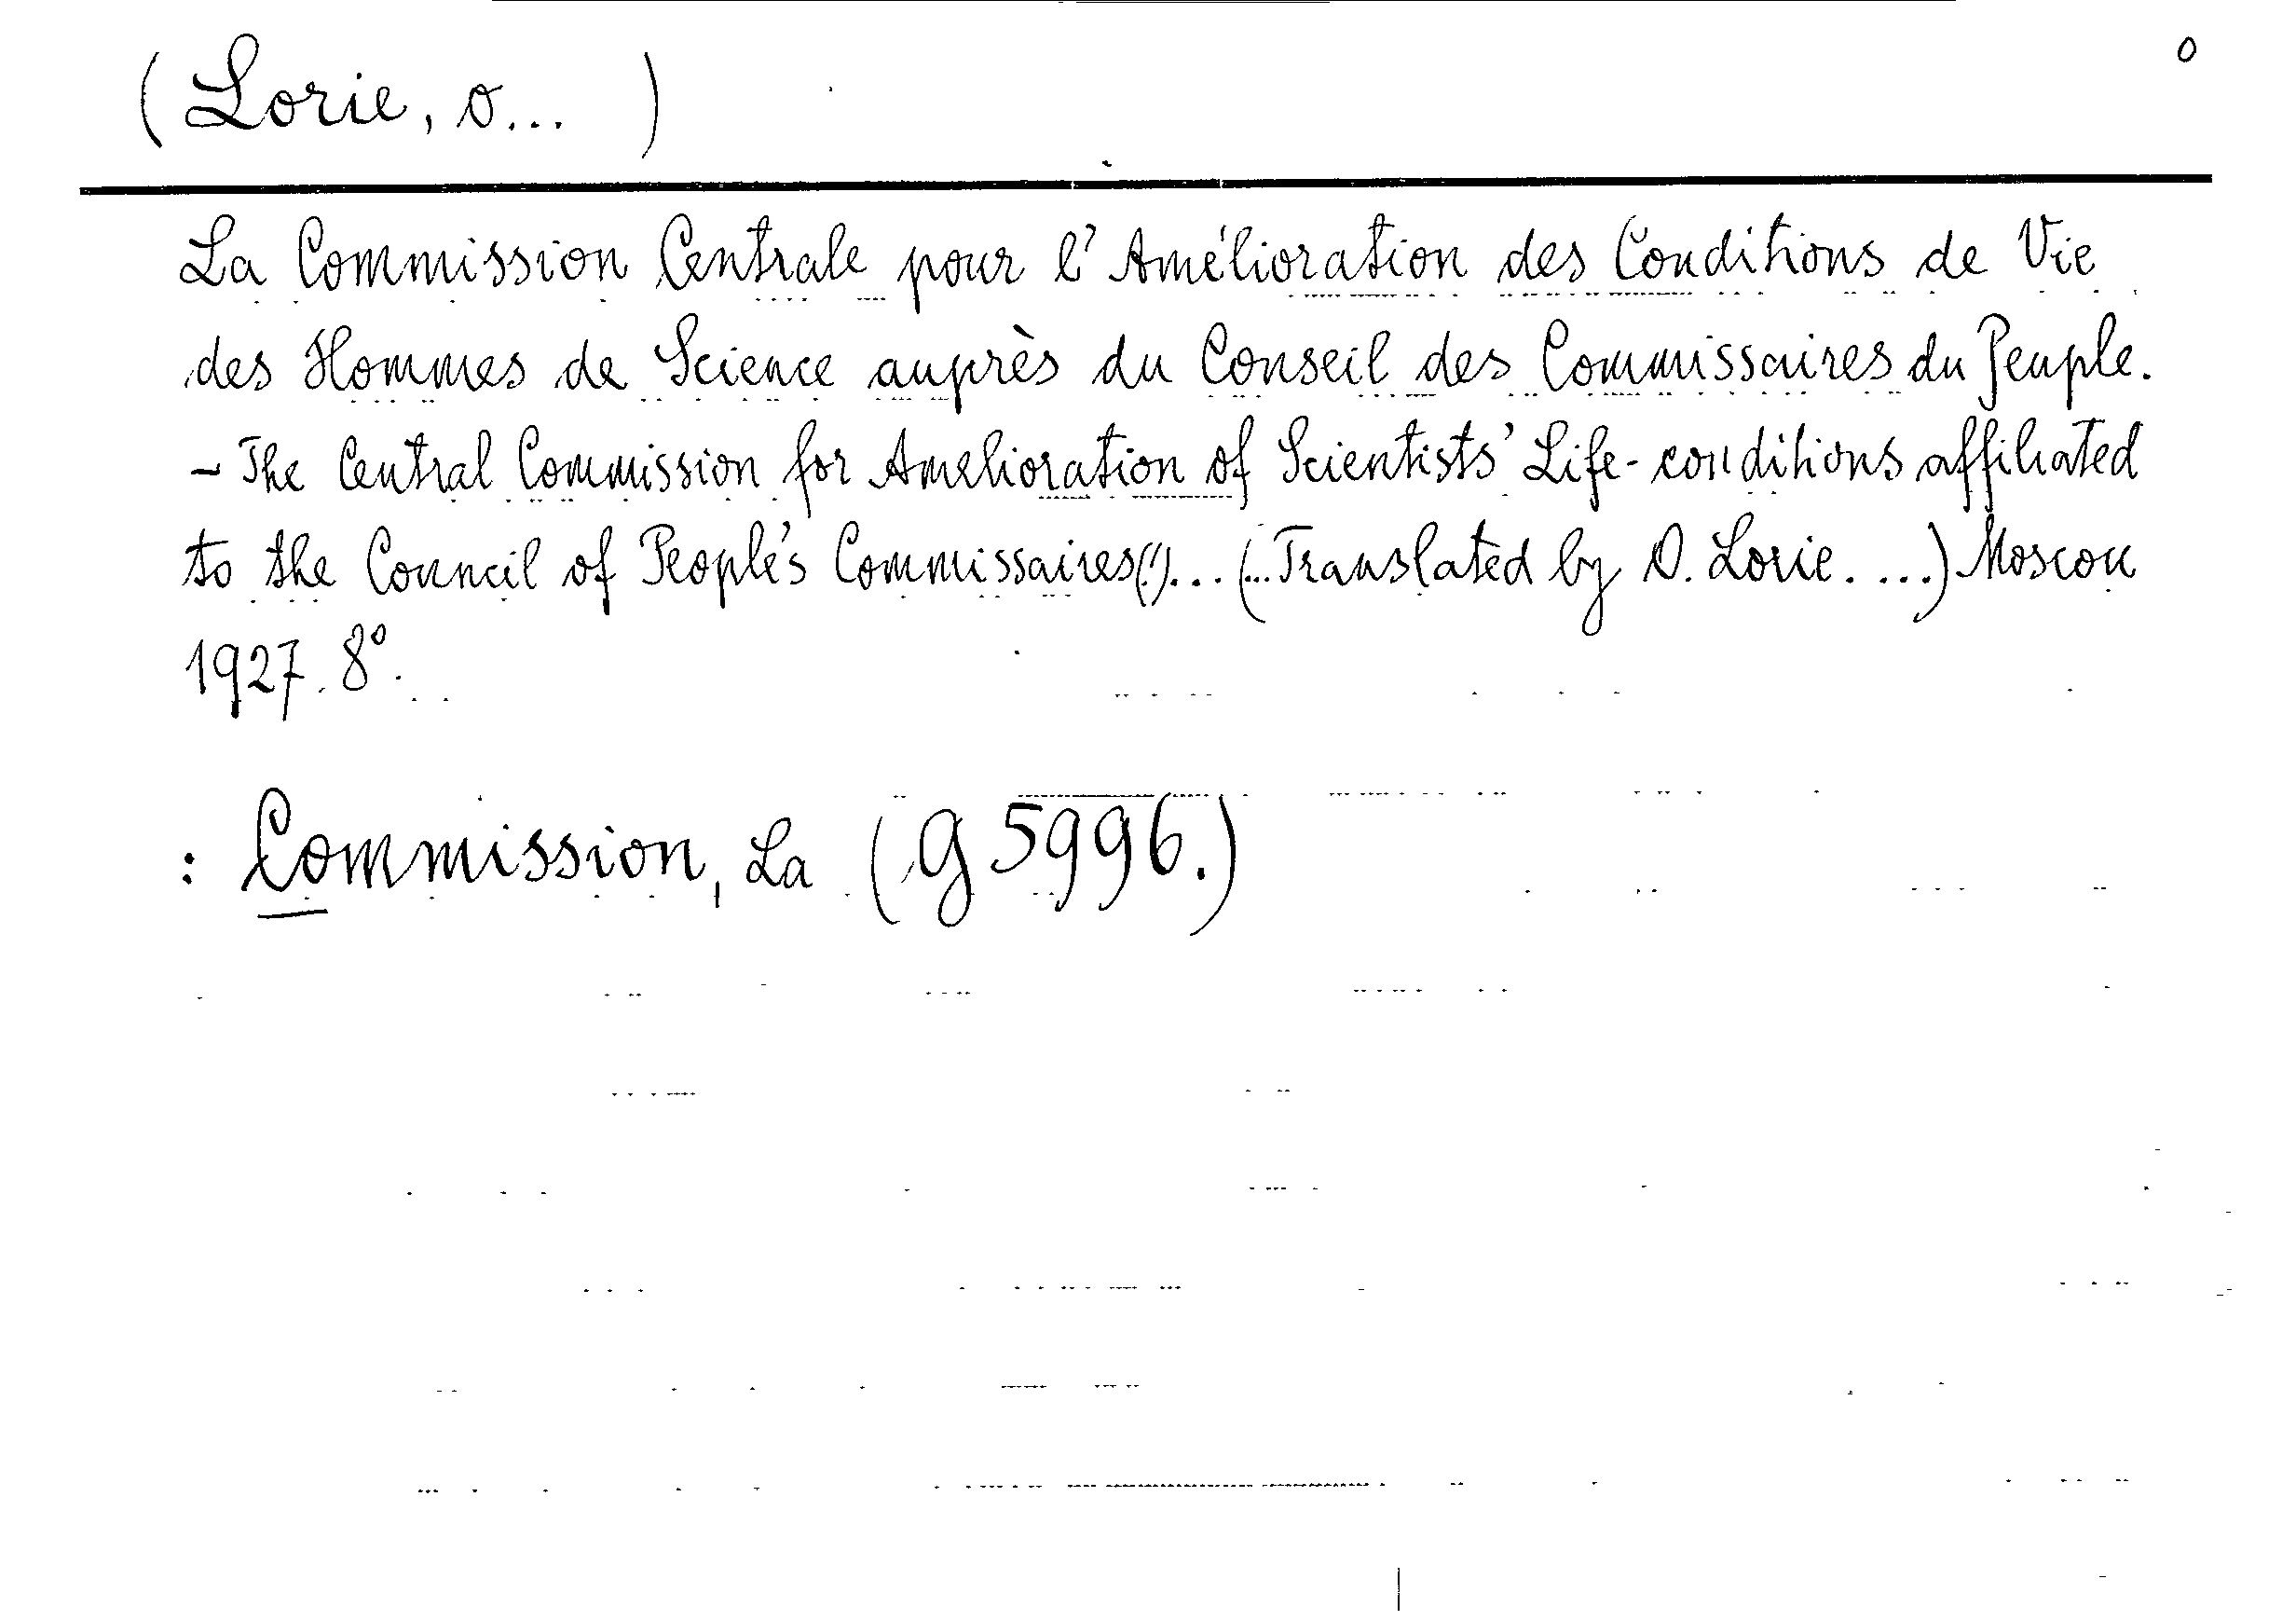 o
(Lorie, O... )
La Commission Centrale pour l'Amélioration des Conditions de Vie
des Hommes de Science auprès du Conseil des Commissaires du Peuple.
- The Central Commission for Amelioration of Scientists' Life-conditions affiliated
to the Council of People's Commissaires(!)... (...Translated by O. Lorie. ...) Moscou
1927. 8°.
: Commission, La (g 5996.)